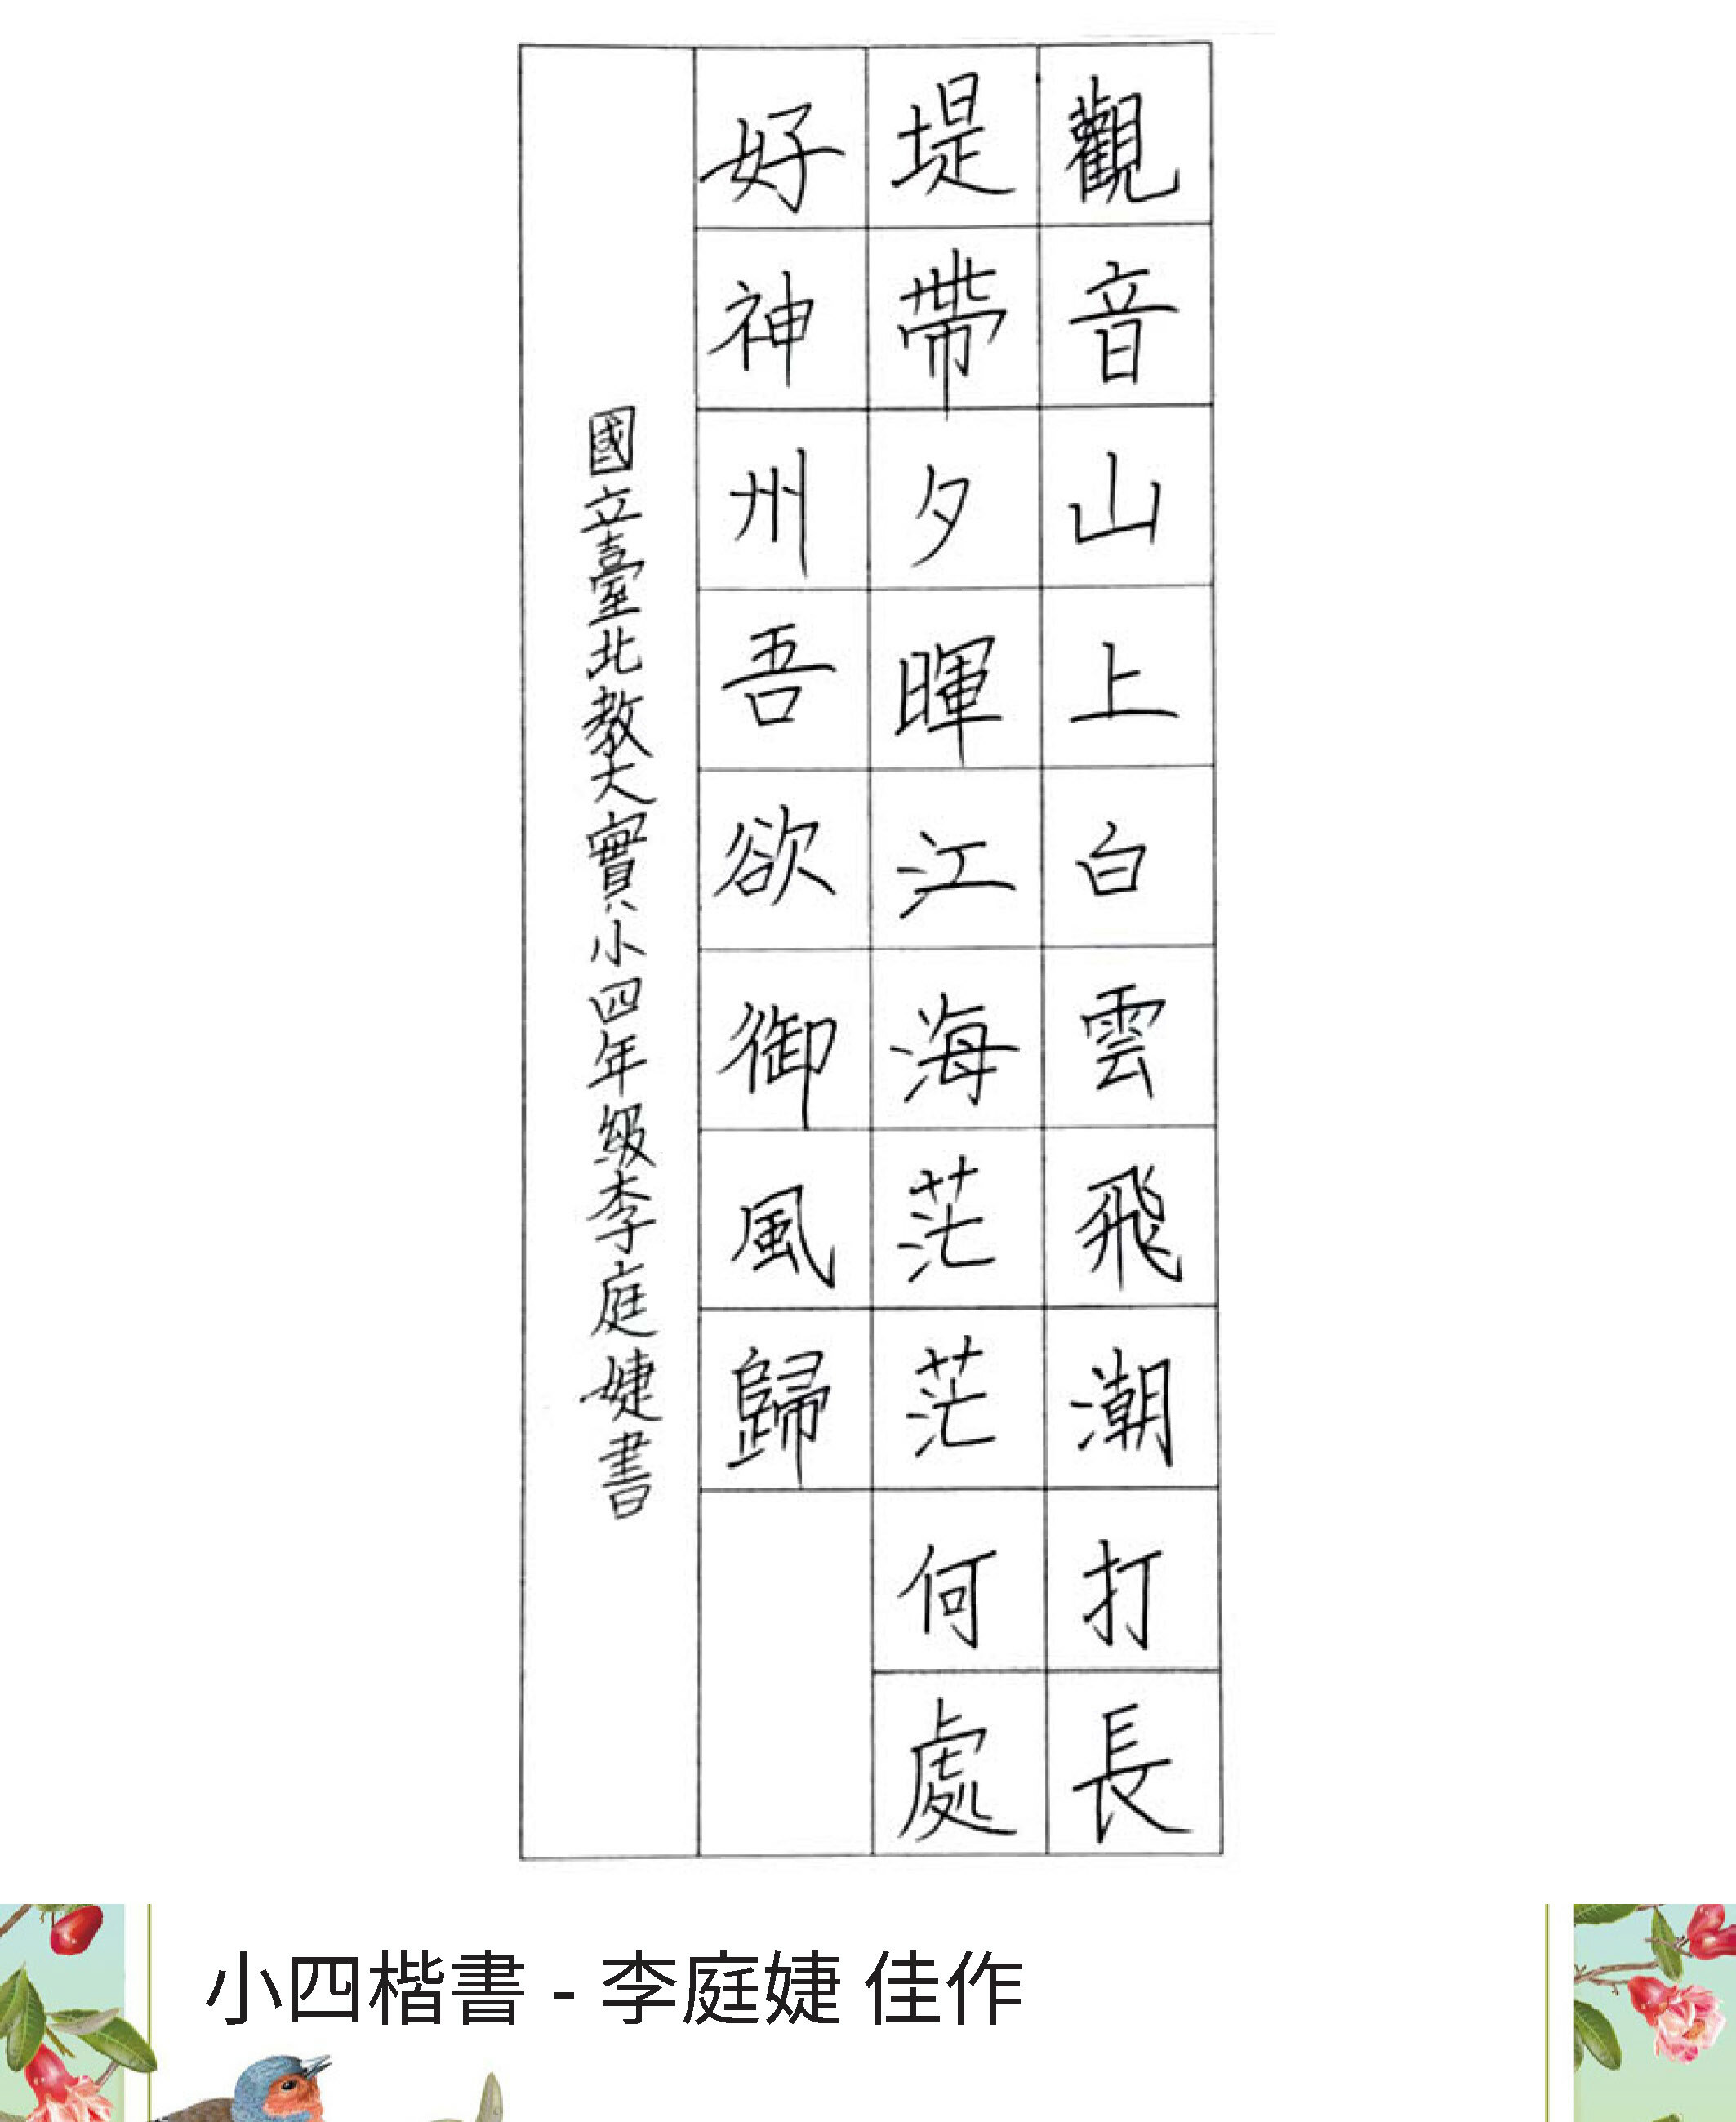 觀音山上白雲飛潮打長
堤帶夕暉江海茫茫何處
好神州吾欲御風歸
國立臺北教大實小四年級李庭婕書
小四楷書 - 李庭婕 佳作